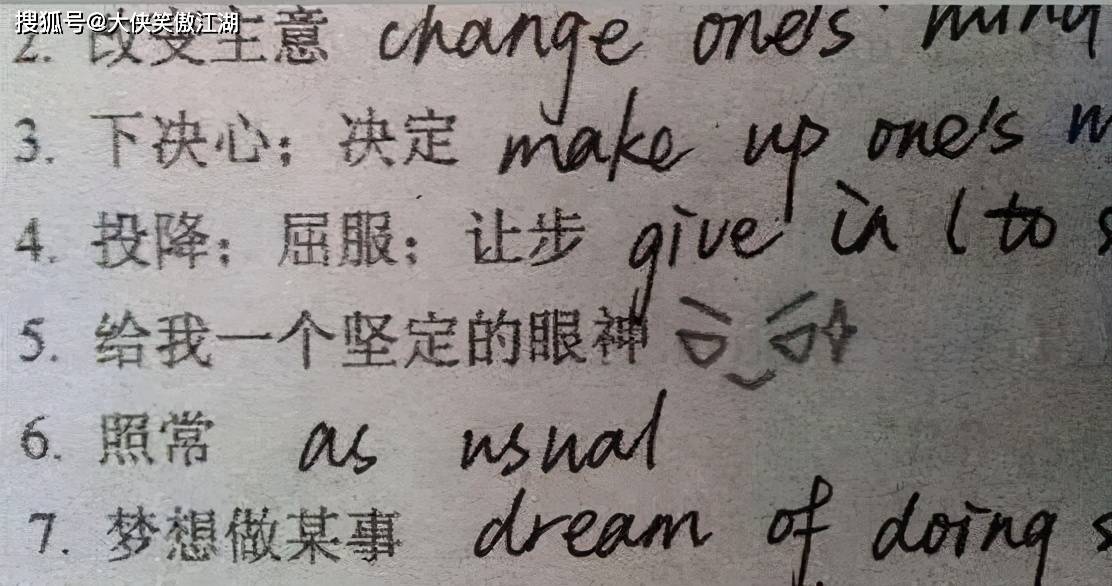 搜狐号@大侠笑傲江湖
2. 改变主意 change one's mind
3. 下决心；决定 make up one's
4. 投降；屈服；让步 give in (to
5. 给我一个坚定的眼神
6. 照常 as usual
7. 梦想做某事 dream of doing